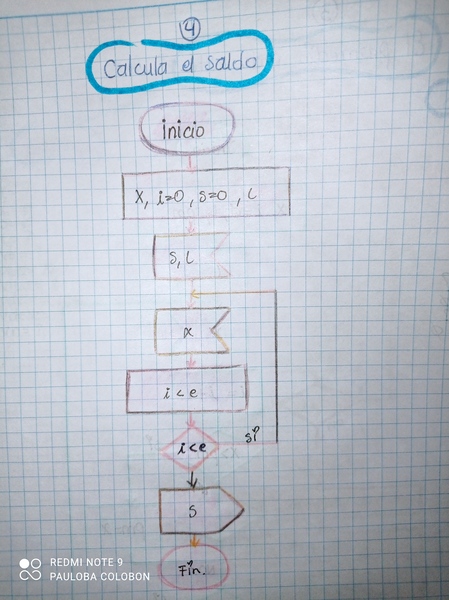 4
Calcula el saldo
inicio
X, i=0, s=0, L
s, L
x
i<e
i<e
sí
s
Fin.
REDMI NOTE 9
PAULOBA COLOBON